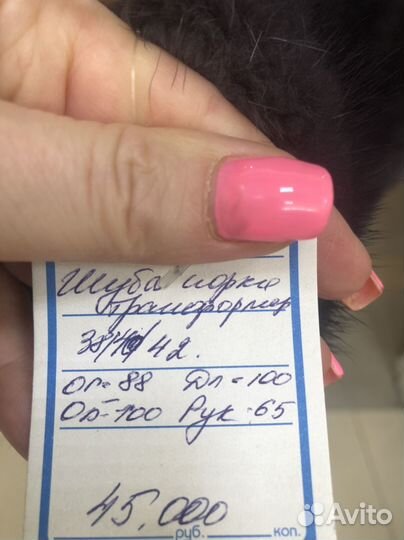 Шуба норка
трансформер
38/40/42.
ОГ=88 Дл=100
ОБ=100 Рук-65
45.000
руб. коп.
Avito